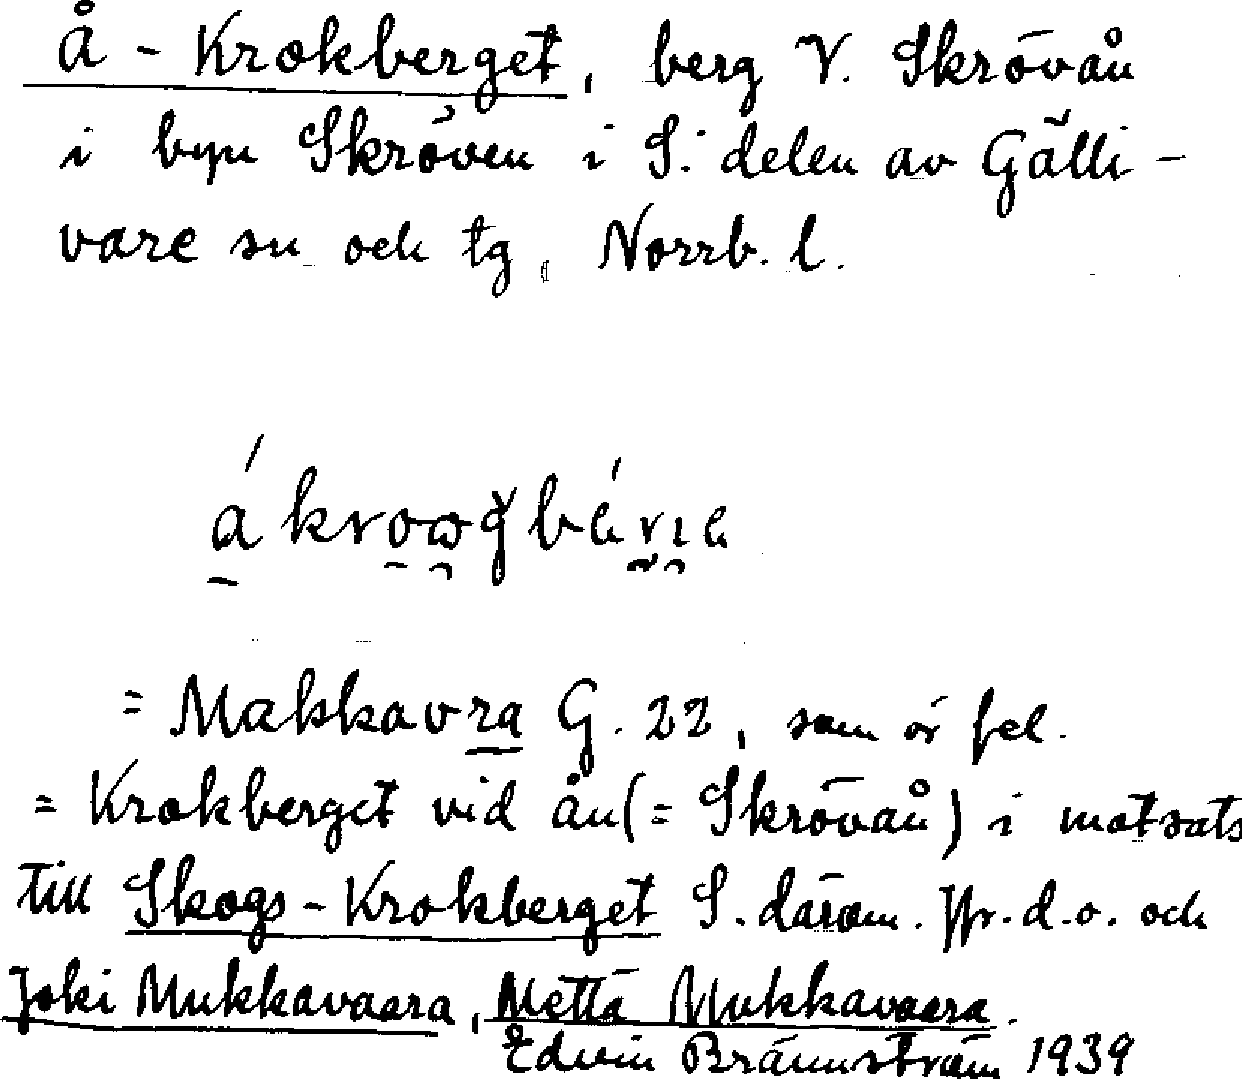 Å-Krokberget, berg V. Skrövån
i byn Skröven i S. delen av Gälli-
vare sn och tg, Norrb. l.
= Makkavra G. 22, som är fel.
= Krokberget vid ån (= Skrövån) i motsats
till Skogs-Krokberget S. därom. Jfr. d.o. och
Joki Mukkavaara, Mettä Mukkavaara.
Edvin Brännström 1939